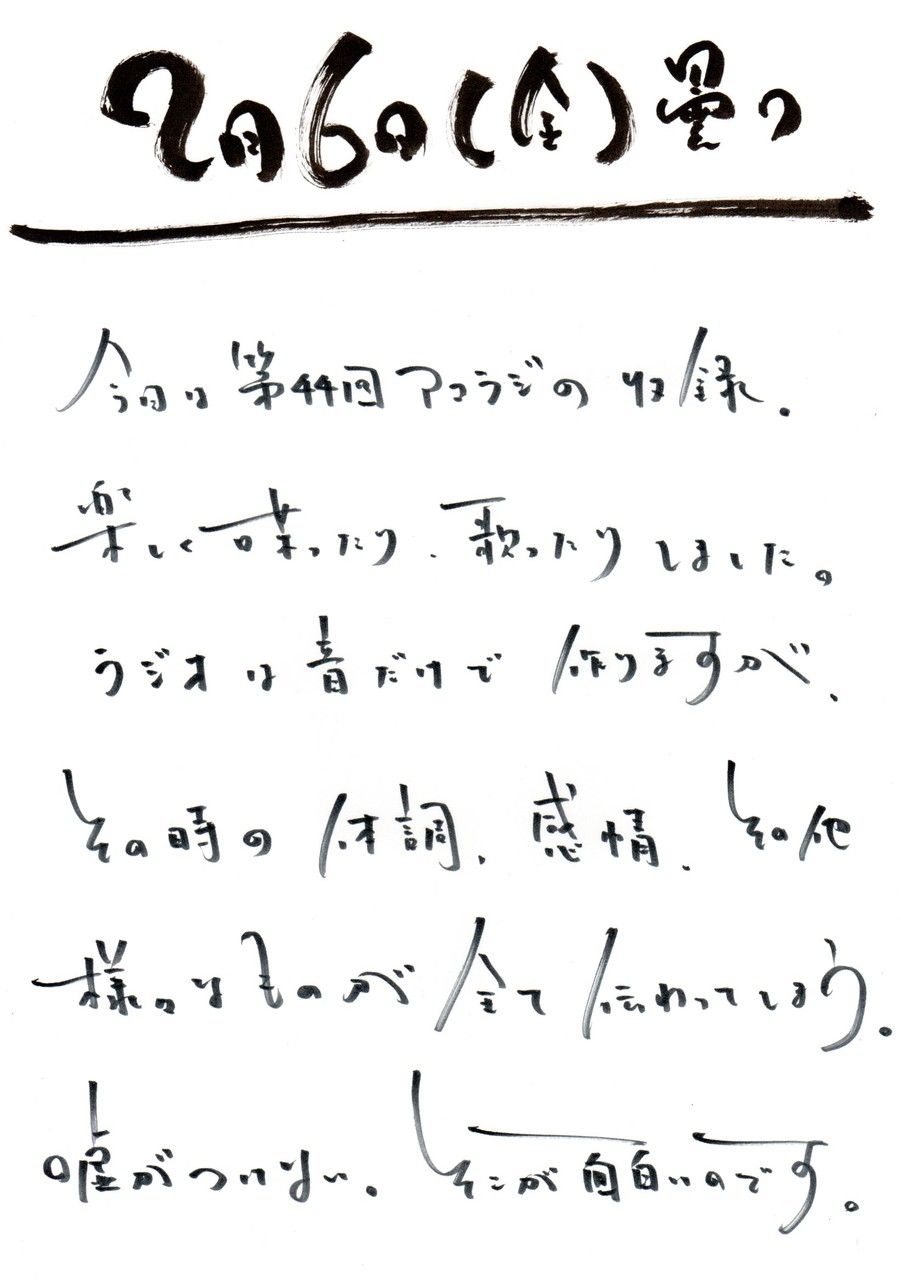 2月6日(金)曇り
今日は第44回アコラジの収録。
楽しく喋ったり、歌ったりしました。
ラジオは音だけで作りますが、
その時の体調、感情、その他
様々なものが全て伝わってしまう。
嘘がつけない。そこが面白いのです。